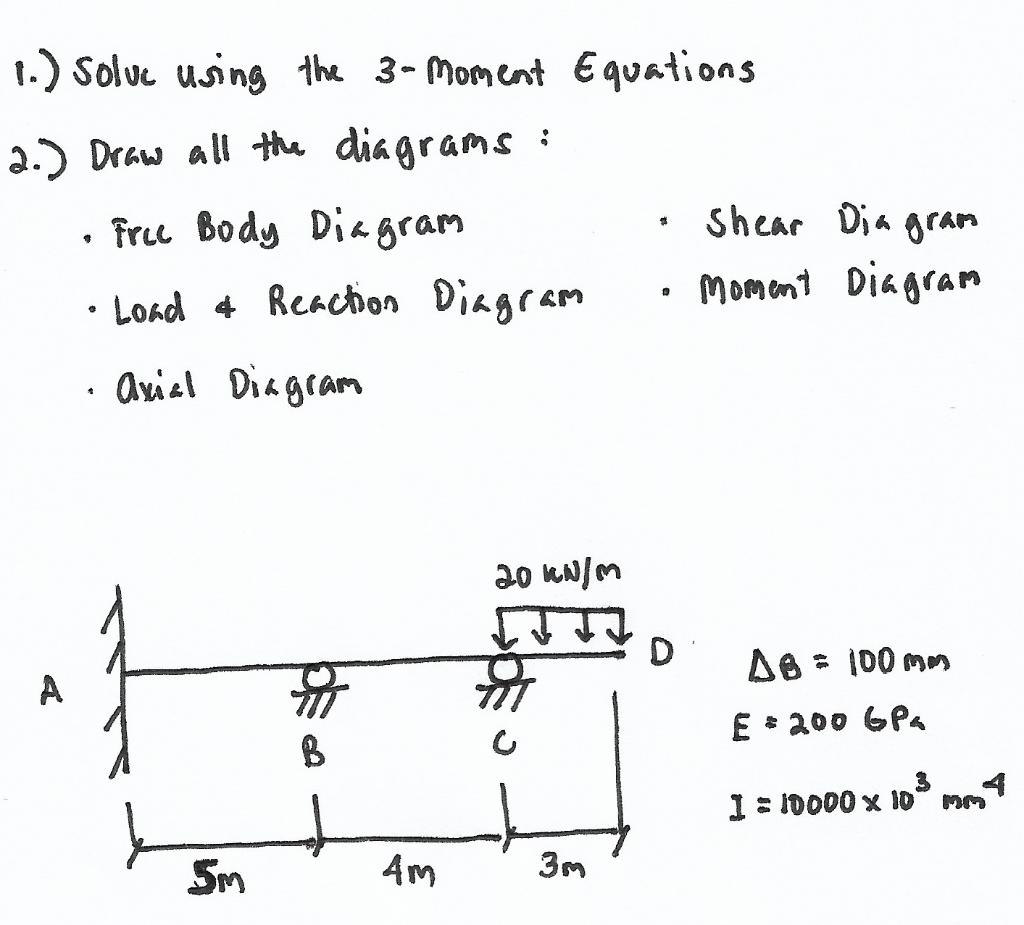 1.) Solve using the 3-Moment Equations
2.) Draw all the diagrams :
· Free Body Diagram
· Shear Diagram
· Load & Reaction Diagram
· Moment Diagram
· Axial Diagram
20 kN/m
A
D
B
C
ΔB = 100 mm
E = 200 GPa
I = 10000 x 10³ mm⁴
5m
4m
3m